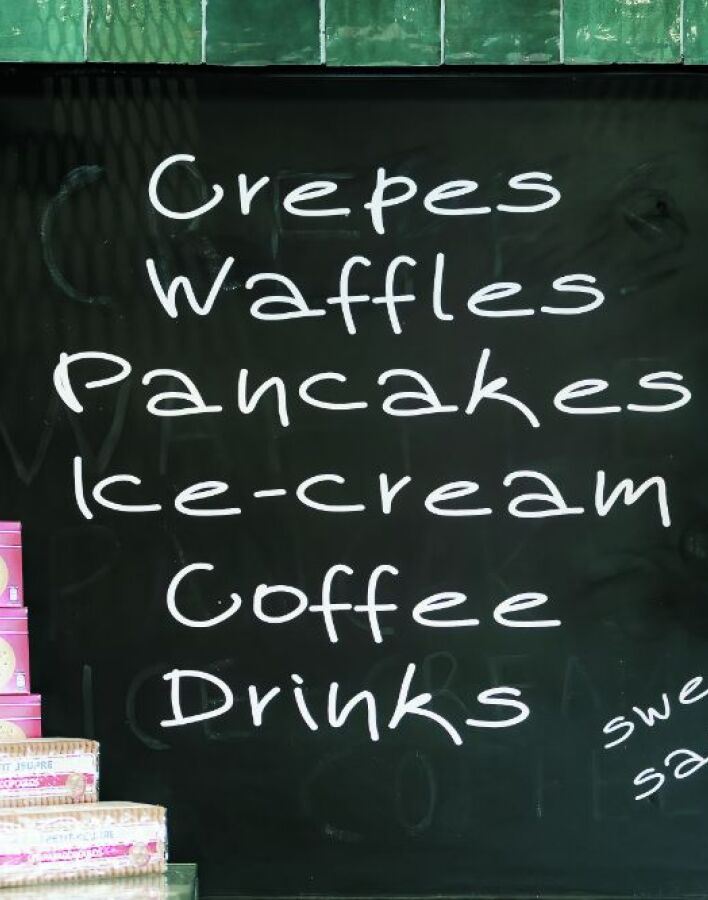 Crepes
Waffles
Pancakes
Ice-cream
Coffee
Drinks
swe
sa